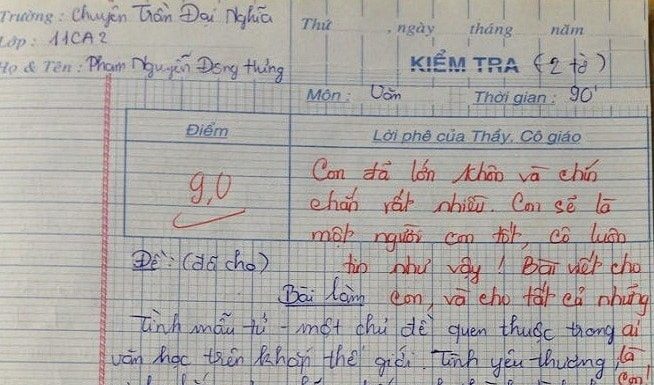 Trường: Chuyên Trần Đại Nghĩa
Lớp: 11CA2
Họ & Tên: Phạm Nguyễn Đông Hưng
Thứ , ngày tháng năm
KIỂM TRA (2 tờ)
Môn: Văn Thời gian: 90'
Điểm
Lời phê của Thầy, Cô giáo
9,0
Con đã lớn khôn và chín
chắn rất nhiều. Con sẽ là
một người con tốt, cô luôn
tin như vậy! Bài viết cho
con, và cho tất cả những
ai
là
con!
Đề: (đã cho)
Bài làm
Tình mẫu tử - một chủ đề quen thuộc trong
văn học trên khắp thế giới. Tình yêu thương